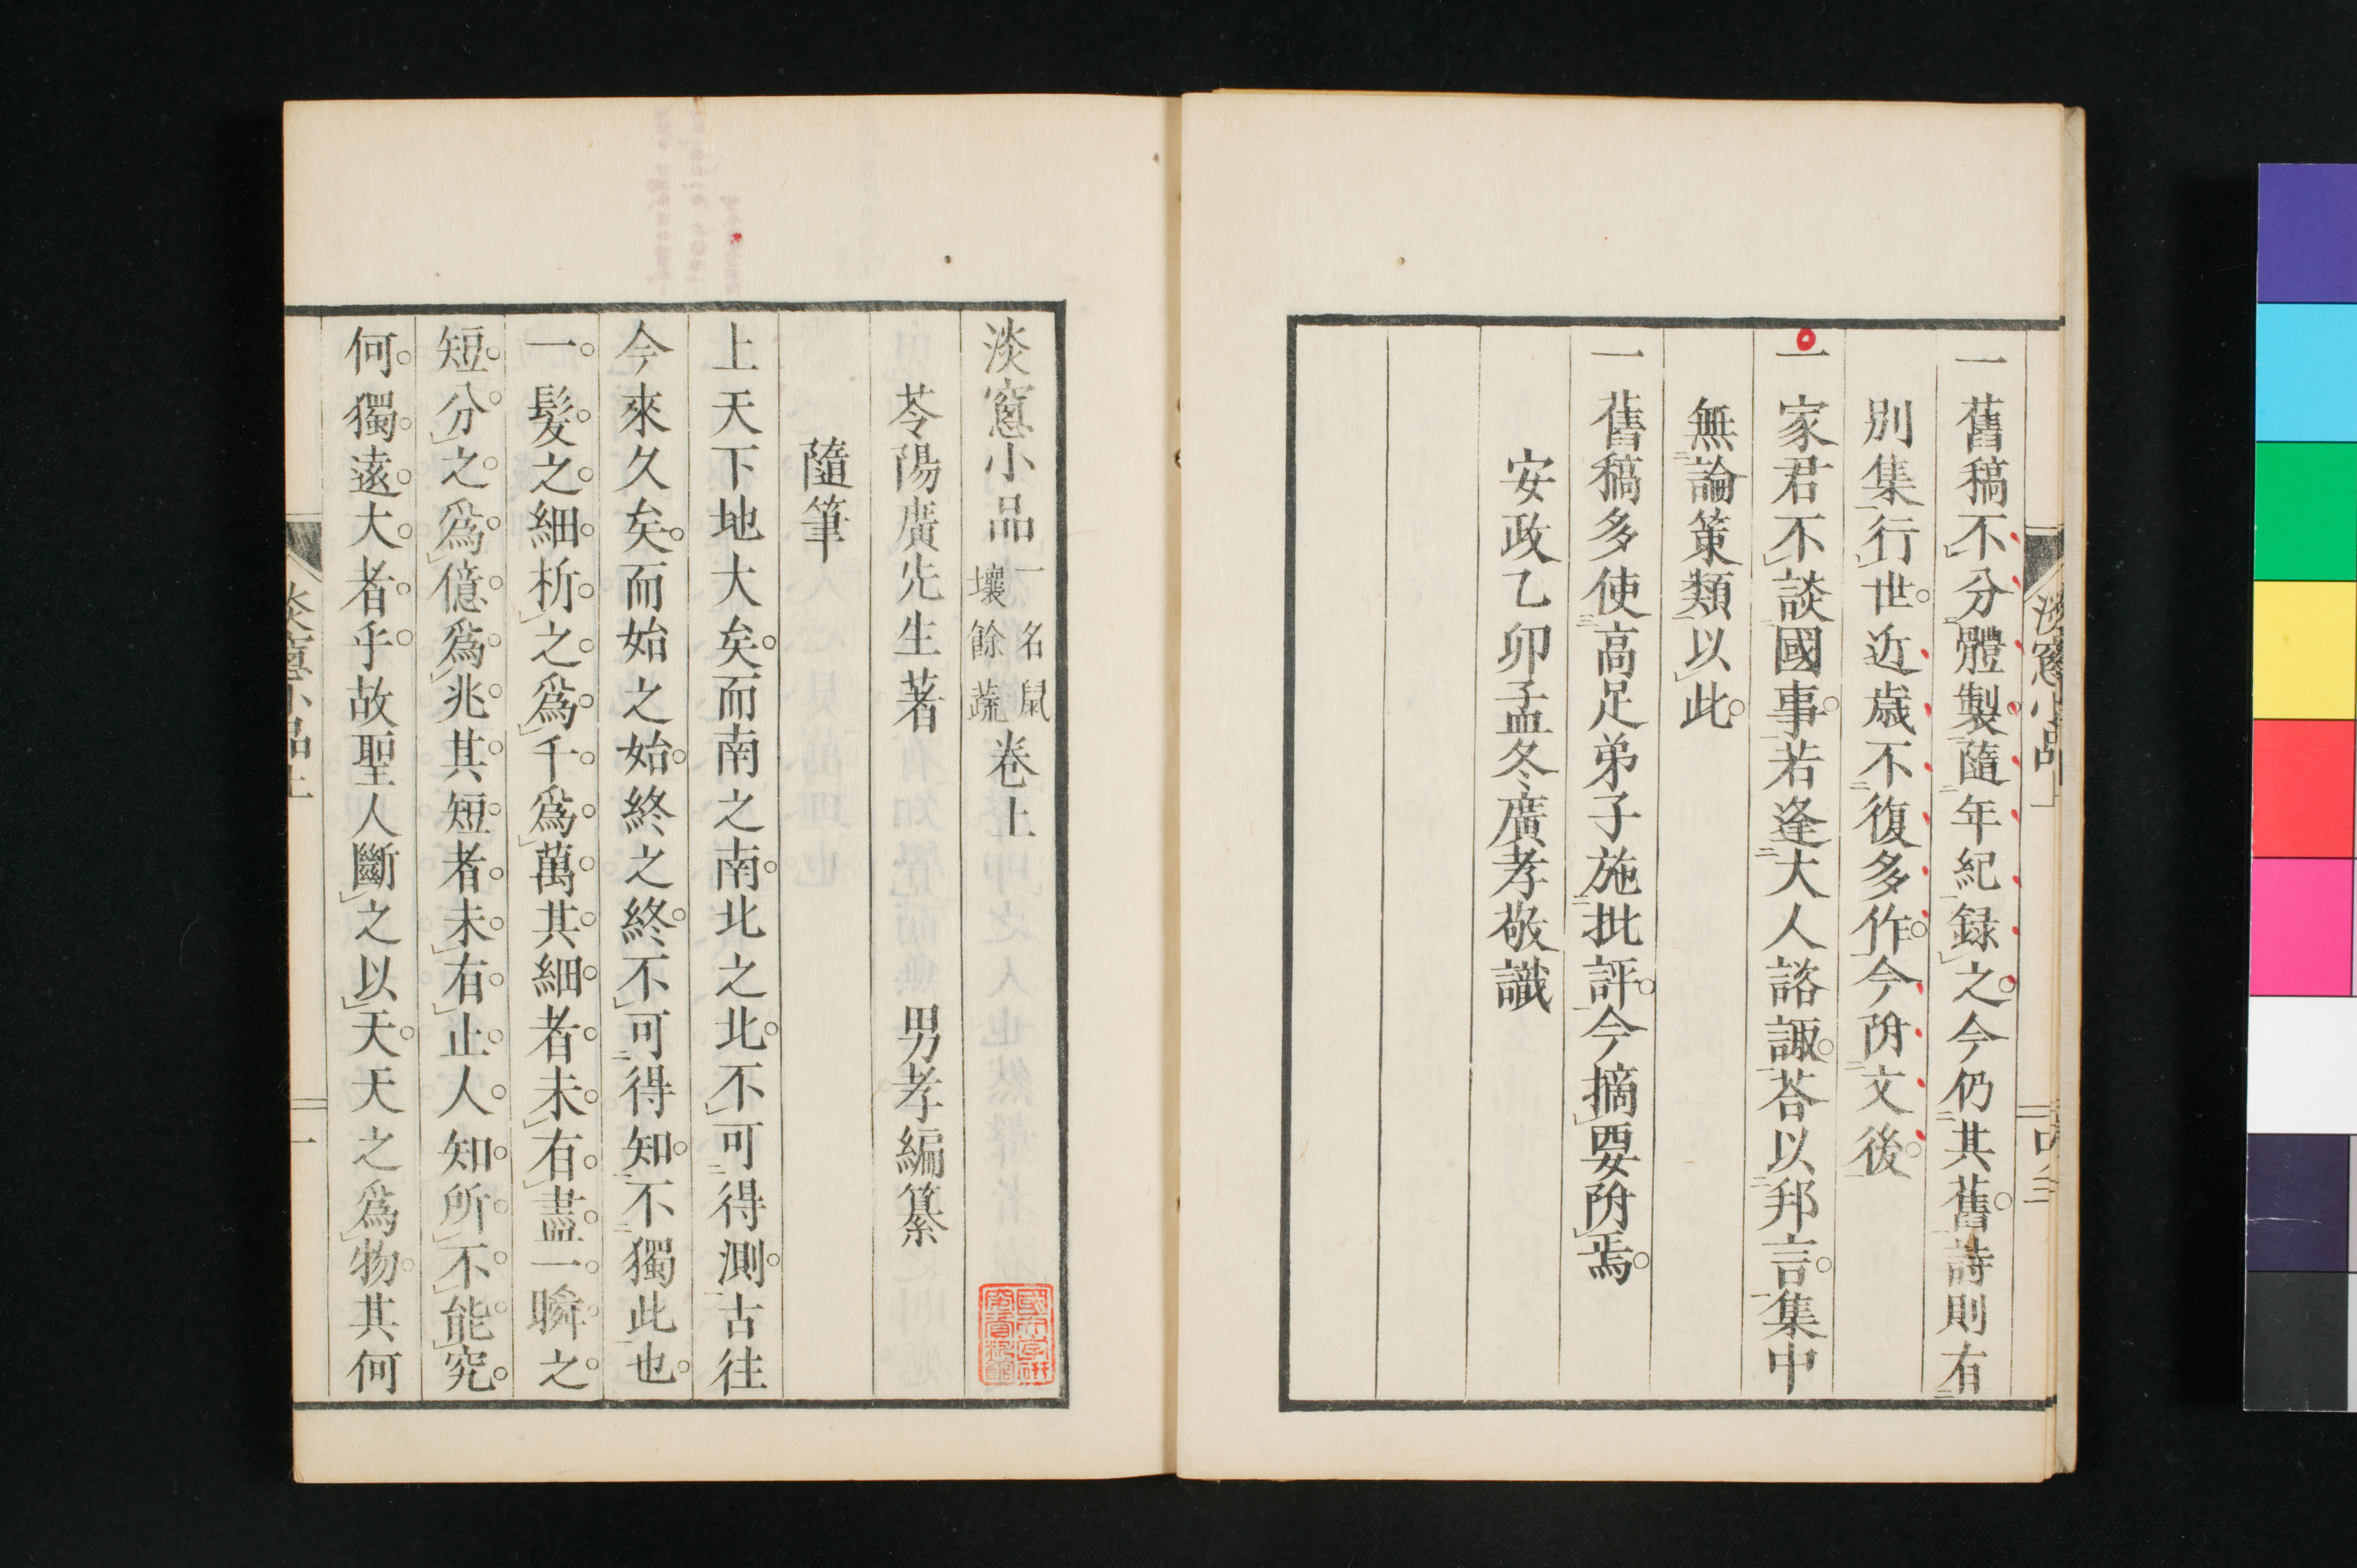 一舊稿不分體製隨年紀録之今仍其舊詩則有
別集行世近歳不復多作今附文後
一家君不談國事若逢大人諮諏荅以邦言集中
無論策類以此
一舊稿多使高足弟子施批評今摘要附焉
安政乙卯孟冬廣孝敬識
淡窻小品一名鼠壤餘蔬卷上
苓陽廣先生著 男孝編纂
隨筆
上天下地大矣而南之南北之北不可得測古往
今來久矣而始之始終之終不可得知不獨此也
一髮之細析之爲千爲萬其細者未有盡一瞬之
短分之爲億爲兆其短者未有止人知所不能究
何獨遠大者乎故聖人斷之以天天之爲物其何
淡窻小品上
一